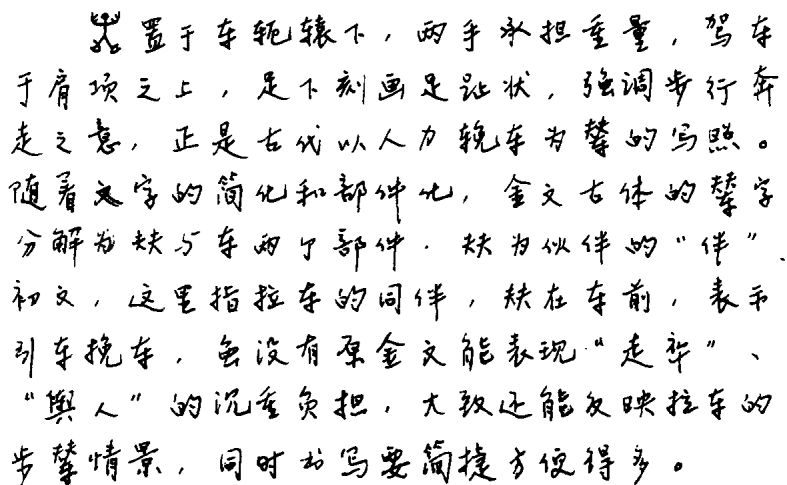 置于车轭辕下，两手承担重量，驾车
于肩项之上，足下刻画足趾状，强调步行奔
走之意，正是古代以人力輓车为辇的写照。
随着文字的简化和部件化，金文古体的辇字
分解为㚘与车两个部件．㚘为伙伴的“伴”
初文，这里指拉车的同伴，㚘在车前，表示
引车挽车，虽没有原金文能表现“走辇”、
“舆人”的沉重负担，大致还能反映拉车的
步辇情景，同时书写要简捷方便得多。